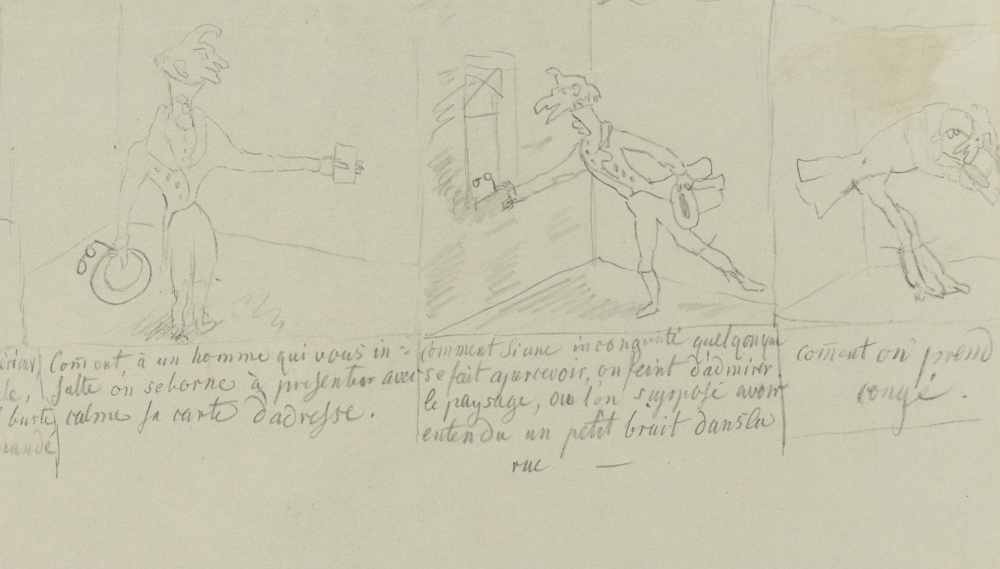 Coment, à un homme qui vous in-
sulte on se borne à presenter avec
calme sa carte d'adresse.
Comment si une incongruité quelqonque
se fait apercevoir, on feint d'admirer
le paysage, ou l'on supposé avoir
entendu un petit bruit dans la
rue —
coment on prend
congé.